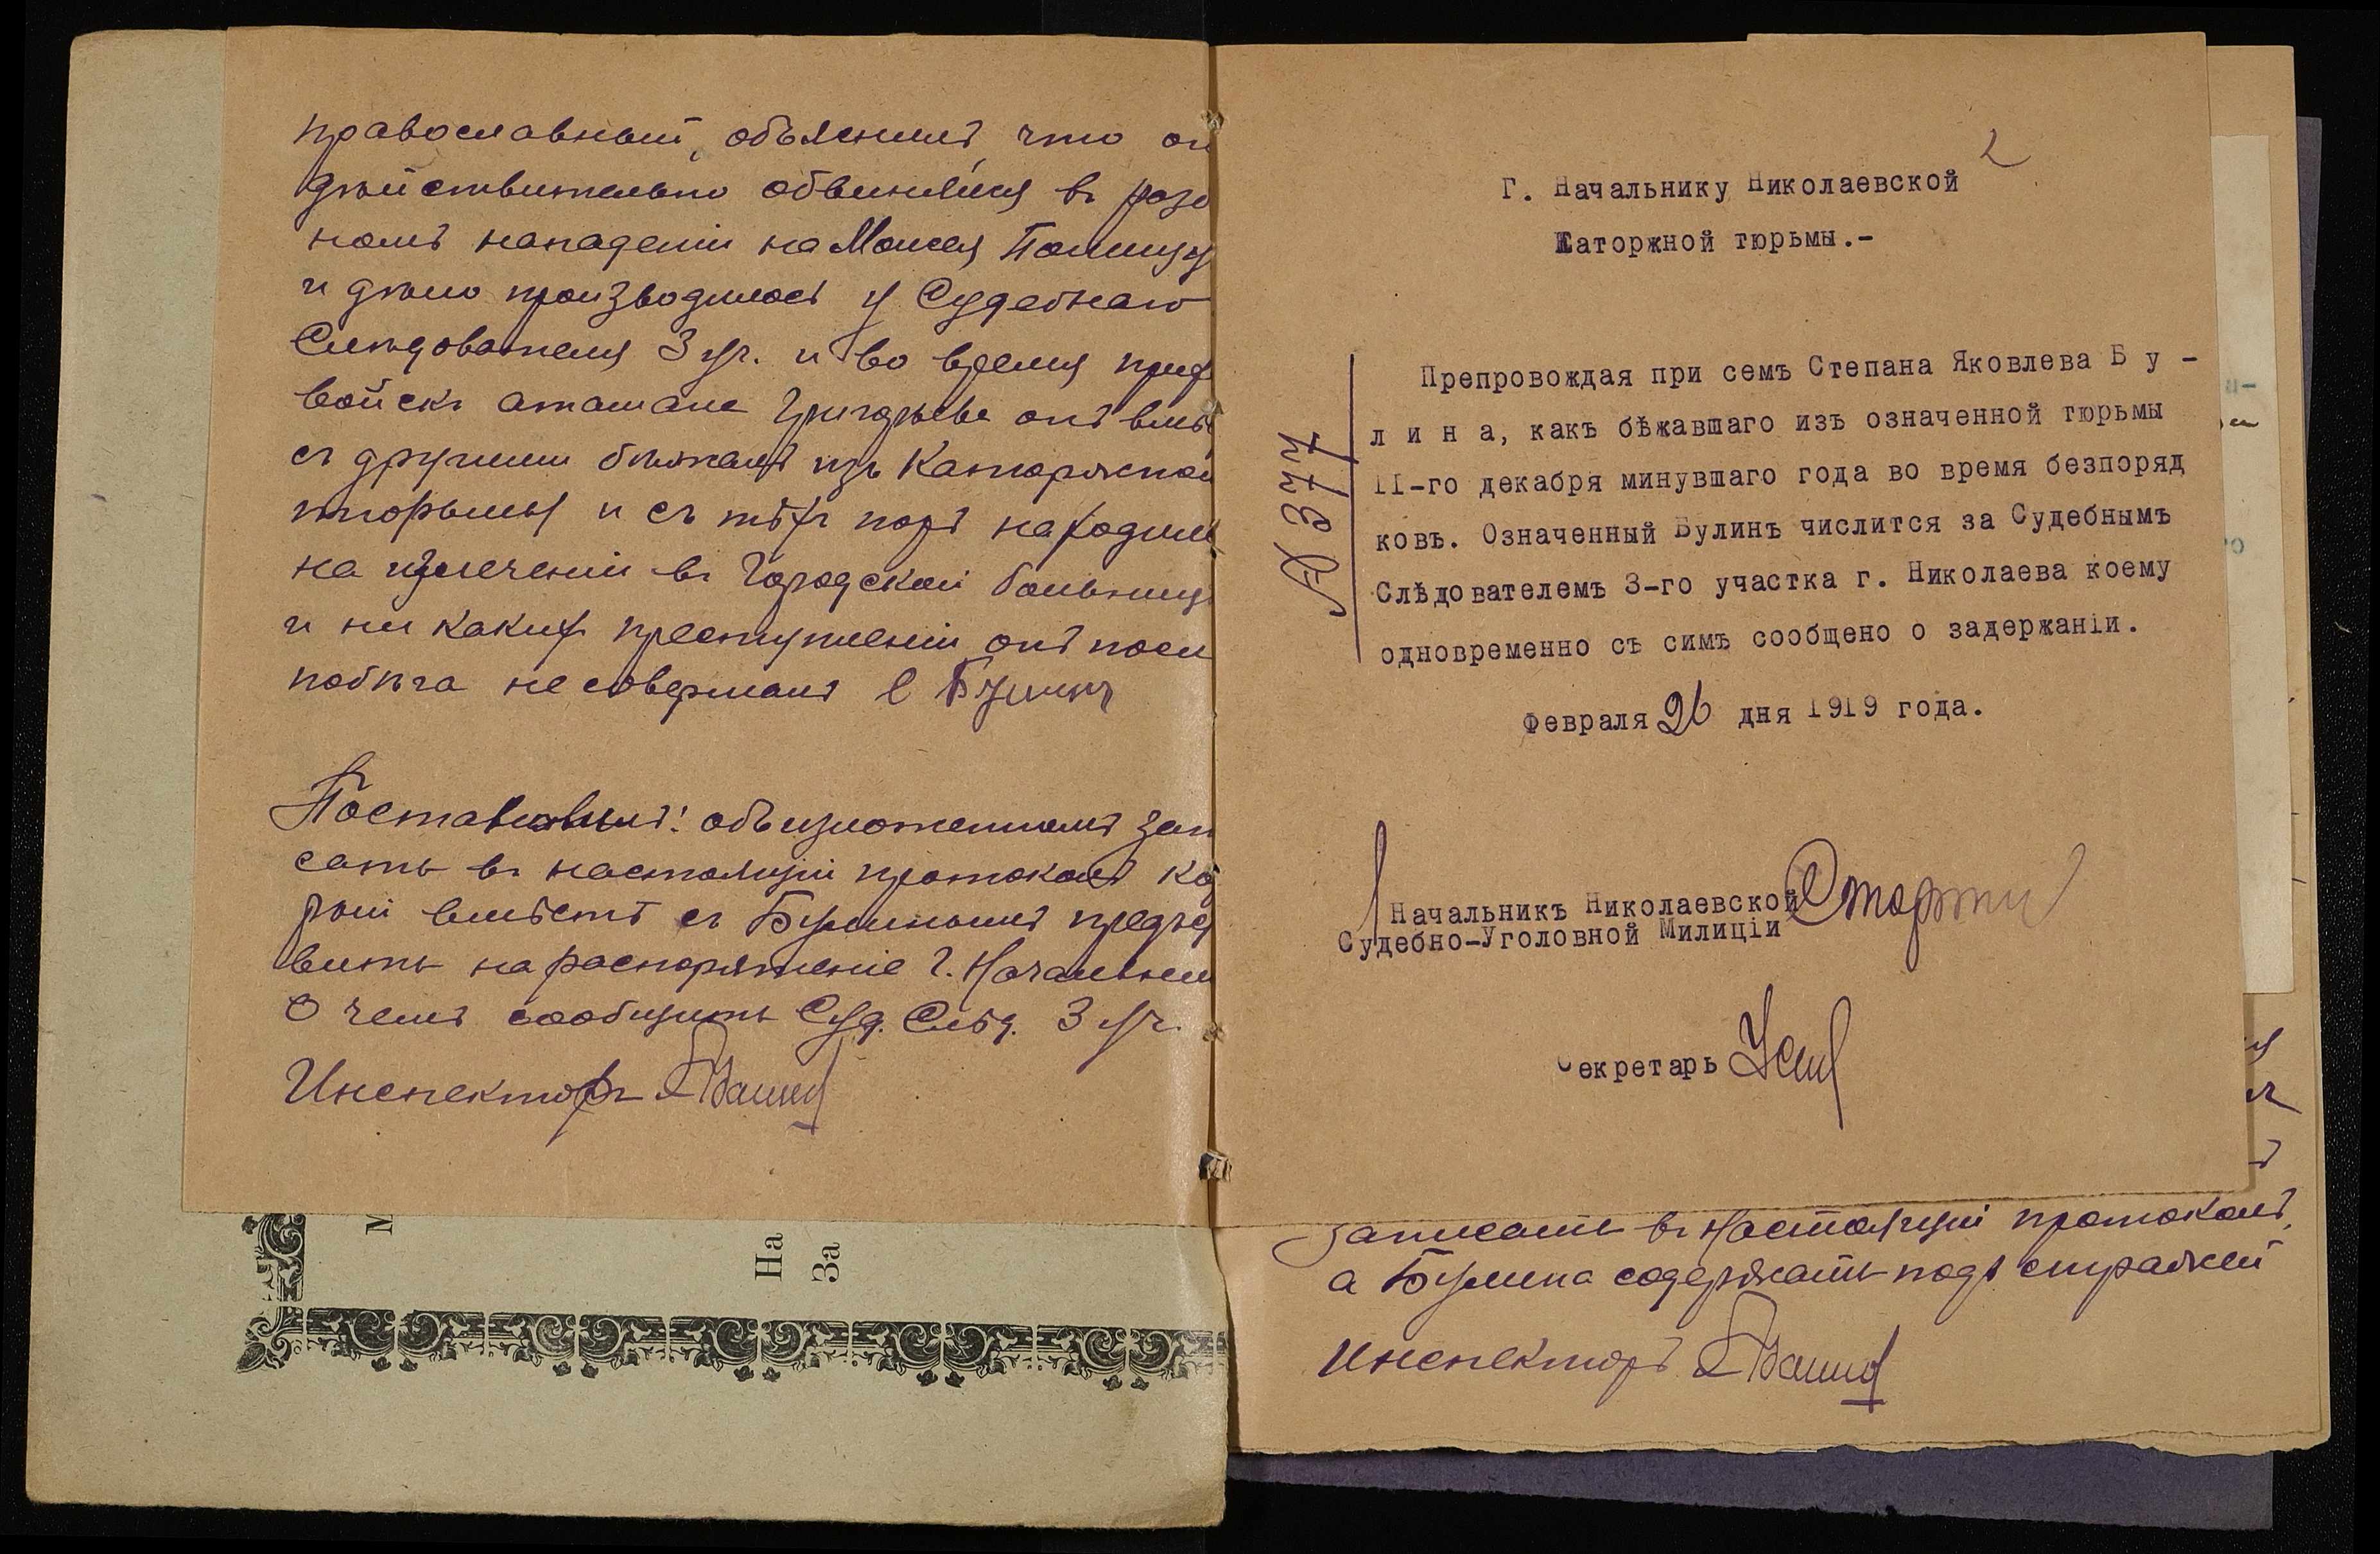 православный, объяснилъ, что он
дѣйствительно обвинялся въ разб
номъ нападеніи на Моисея
и дѣло производилось у Судебнаго
Слѣдователя 3 уч. и во время приб
войскъ атамана Григорьева онъ вмѣс
съ другими бѣжалъ изъ Каторжной
тюрьмы и съ тѣхъ поръ находил
на излеченіи въ Городской больниц
и ни какихъ преступленій онъ посл
побѣга не совершалъ С Булинъ
Постановилъ: объ изложенномъ зап
сать въ настоящій протоколъ ко
рый вмѣстѣ съ Булинымъ предъя
вить на распоряженіе Г. Начальни
О чемъ сообщить Суд. Слѣд. 3 уч.
Инспекторъ
М
На
За
2
Г. Начальнику Николаевской
Каторжной тюрьмы.-
№ 377
Препровождая при семъ Степана Яковлева Б у -
л и н а, какъ бѣжавшаго изъ означенной тюрьмы
II-го декабря минувшаго года во время безпоряд
ковъ. Означенный Булинъ числится за Судебнымъ
Слѣдователемъ 3-го участка г. Николаева коему
одновременно съ симъ сообщено о задержаніи.
Февраля 26 дня 1919 года.
Начальникъ Николаевской
Судебно-Уголовной Милиціи
Секретарь
записать въ настоящій протоколъ,
а Булина содержать подъ стражей
Инспекторъ